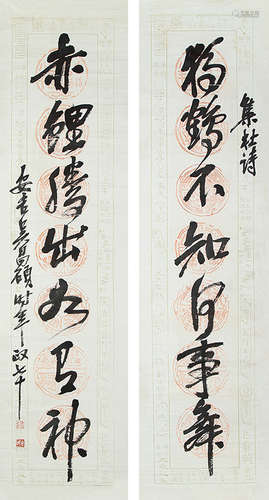 集杜诗
独鹤不知何事舞
赤鲤腾出如有神
安吉吴昌硕时年政七十